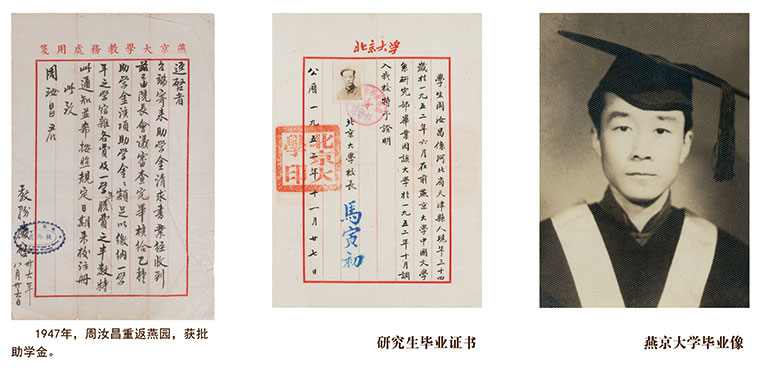 燕京大學教務處用箋
逕啓者
台端寄來助學金請求書業經收到
茲由院長會議審查完畢核給乙種
助學金該項助學金額足以繳納一學
年之學宿雜各費及一學期膳費之半數特
此通知並希按照規定日期來校註冊
此致
周汝昌君
廿六年
八月廿六日
1947年，周汝昌重返燕园，获批
助学金。
北京大学
學生周汝昌係河北省天津縣人現年三十四
歲於一九五二年六月在前燕京大學中國文學
系研究部畢業因該大學於一九五二年十月調
入我校特予證明
北京大學校長 馬寅初
公曆一九五二年十一月廿七日
北京大學印
研究生毕业证书
燕京大学毕业像